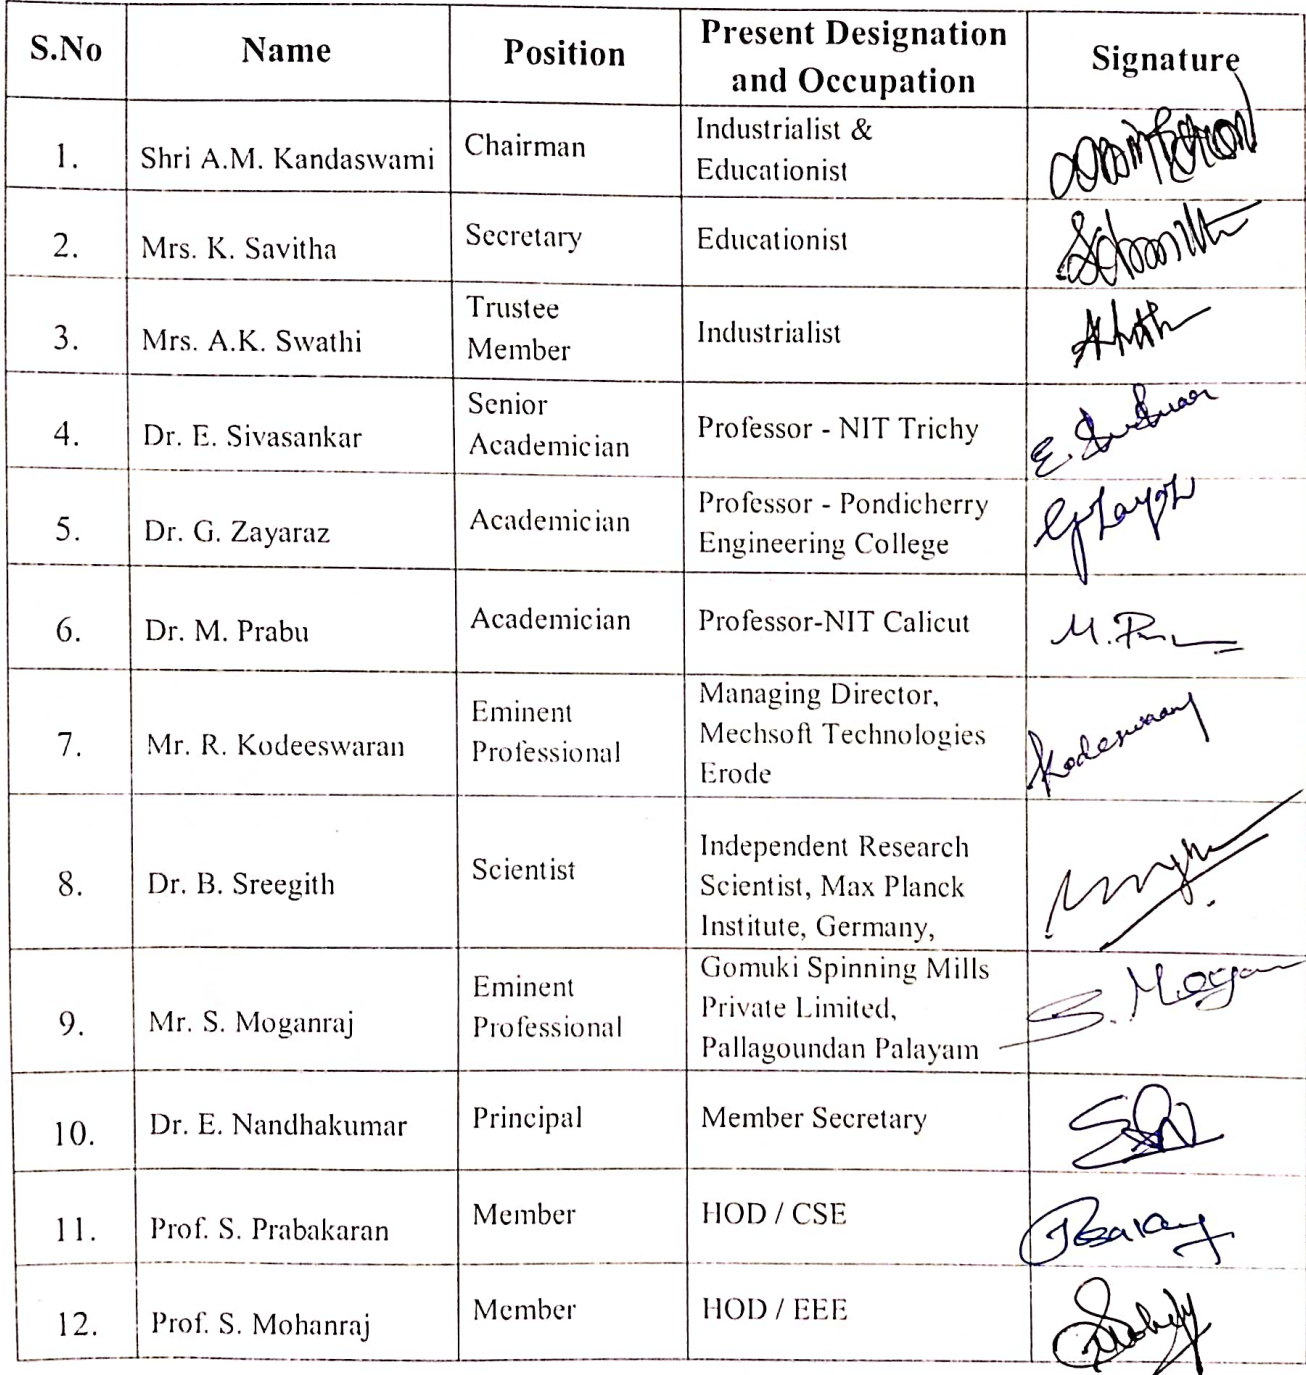 S.No Name Position Present Designation
and Occupation Signature
1. Shri A.M. Kandaswami Chairman Industrialist &
Educationist
2. Mrs. K. Savitha Secretary Educationist
3. Mrs. A.K. Swathi Trustee
Member Industrialist
4. Dr. E. Sivasankar Senior
Academician Professor - NIT Trichy
E.
5. Dr. G. Zayaraz Academician Professor - Pondicherry
Engineering College
6. Dr. M. Prabu Academician Professor-NIT Calicut
M.
7. Mr. R. Kodeeswaran Eminent
Professional Managing Director,
Mechsoft Technologies
Erode
8. Dr. B. Sreegith Scientist Independent Research
Scientist, Max Planck
Institute, Germany,
9. Mr. S. Moganraj Eminent
Professional Gomuki Spinning Mills
Private Limited,
Pallagoundan Palayam
S.
10. Dr. E. Nandhakumar Principal Member Secretary
11. Prof. S. Prabakaran Member HOD / CSE
12. Prof. S. Mohanraj Member HOD / EEE